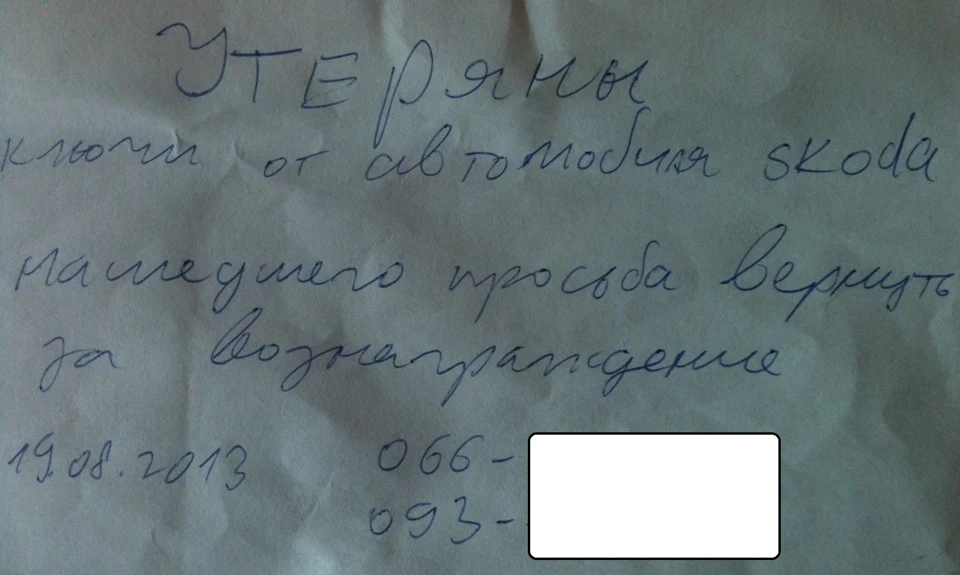 УТЕРЯНЫ
ключи от автомобиля skoda
нашедшего просьба вернуть
за вознаграждение
19.08.2013 066-
093-